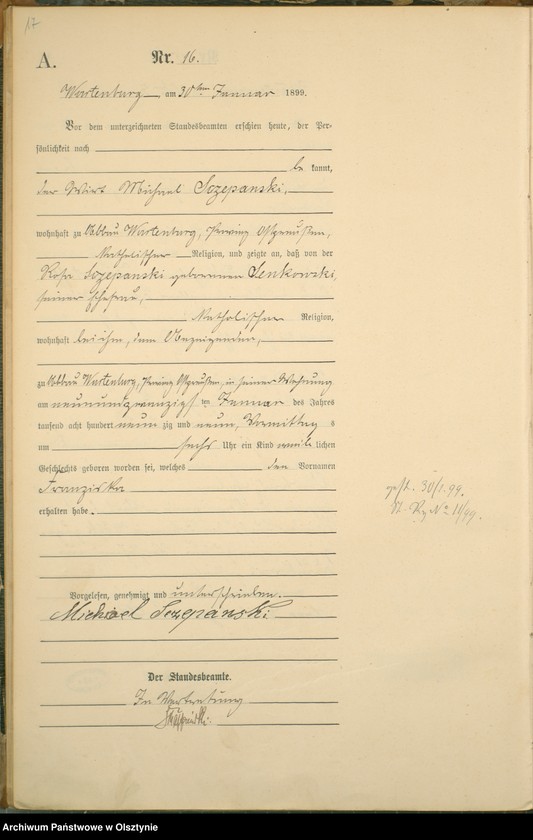 17
A.
Nr. 16.
Wartenburg am 30ten Januar 1899.
Vor dem unterzeichneten Standesbeamten erschien heute, der Per-
sönlichkeit nach
be kannt,
der Wirt Michael Sczepanski,
wohnhaft zu Abbau Wartenburg, Provinz Ostpreußen,
katholischer Religion, und zeigte an, daß von der
Rosa Sczepanski geborenen Senkowski,
seiner Ehefrau,
katholischer Religion,
wohnhaft bei ihm, dem Anzeigenden,
zu Abbau Wartenburg, Provinz Ostpreußen, in seiner Wohnung
am neunundzwanzigsten ten Januar des Jahres
tausend acht hundert neun zig und neun, Vormittag s
um sechs Uhr ein Kind weib lichen
Geschlechts geboren worden sei, welches den Vornamen
Franziska
erhalten habe.
gest. 30/1. 99.
St. Rg. No 11/99.
Vorgelesen, genehmigt und unterschrieben.
Michael Sczepanski
Der Standesbeamte.
In Vertretung
Archiwum Państwowe w Olsztynie